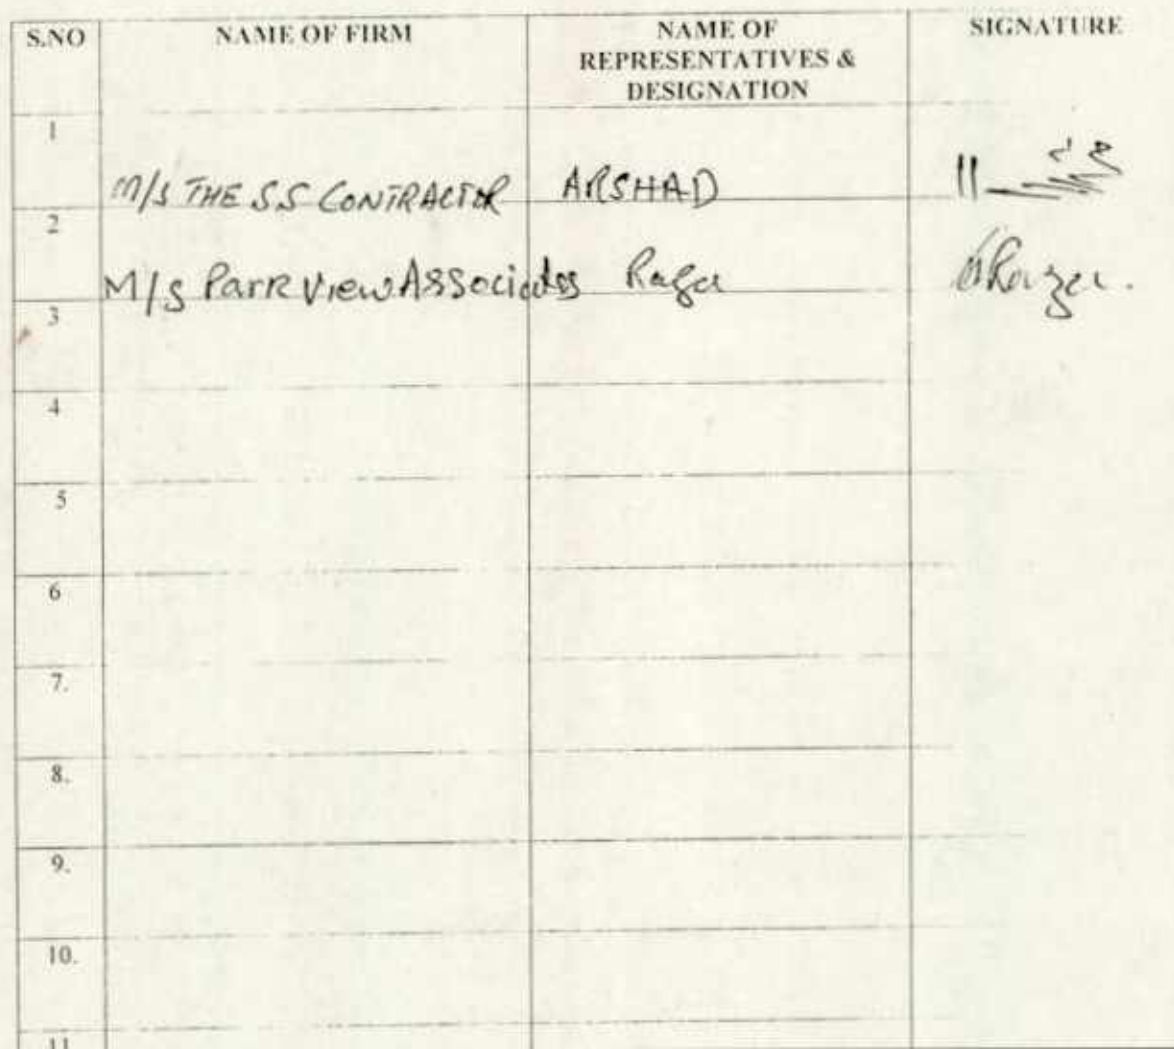 S.NO NAME OF FIRM NAME OF REPRESENTATIVES & DESIGNATION SIGNATURE
1 M/S THE SS CONTRACTOR ARSHAD
2 M/S Park View Associates Raza
3
4
5
6
7.
8.
9.
10.
11